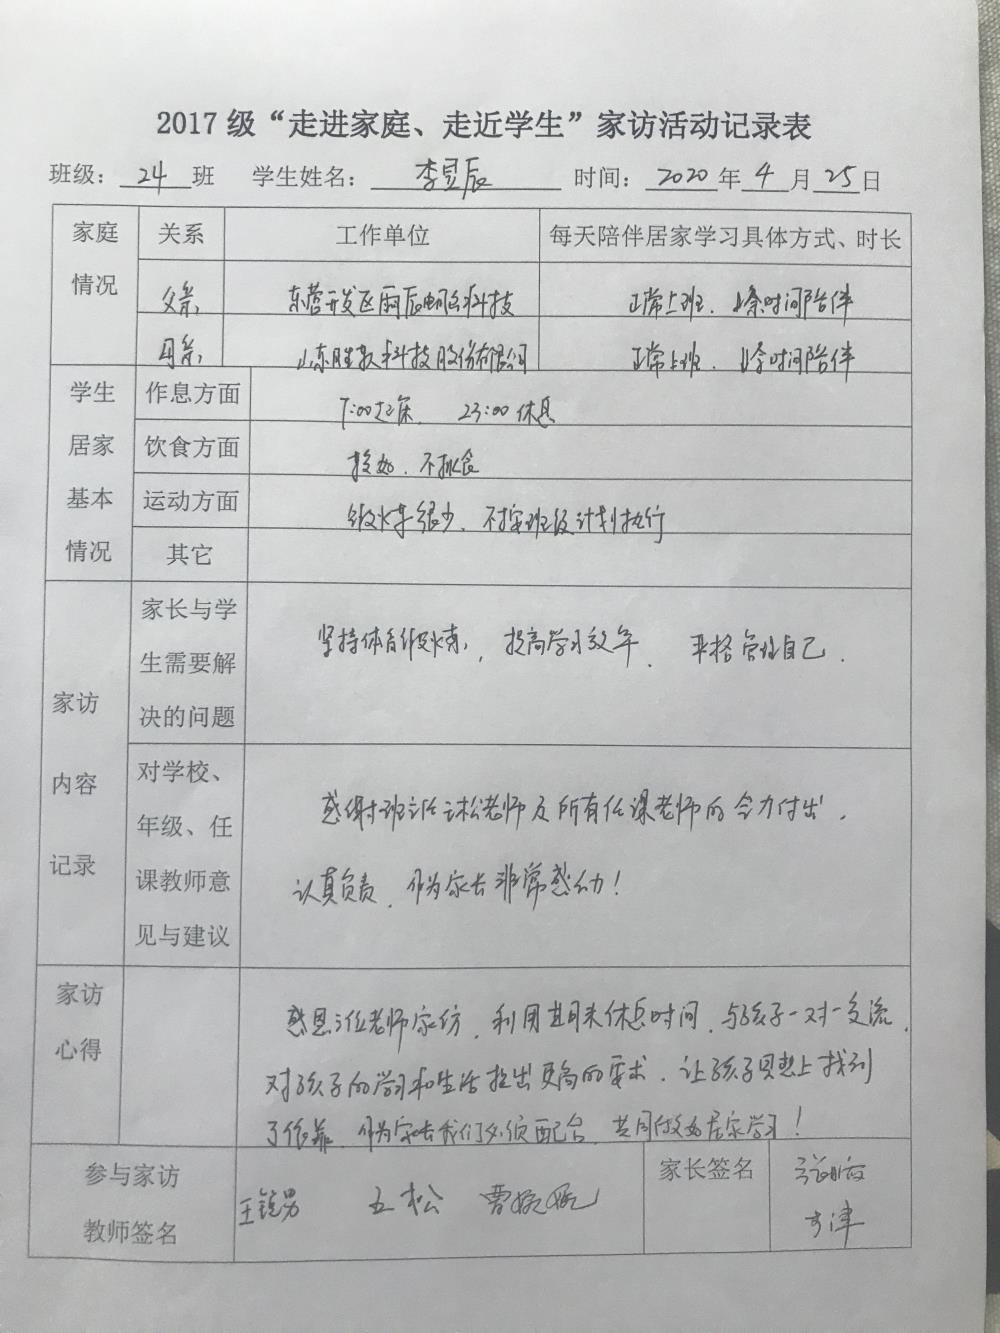 2017级“走进家庭、走近学生”家访活动记录表
班级：24班 学生姓名：李昱辰 时间：2020年4月25日
家庭情况 关系 工作单位 每天陪伴居家学习具体方式、时长
父亲 东营开发区雨辰电脑科技 正常上班．业余时间陪伴
母亲 山东胜软科技股份有限公司 正常上班．业余时间陪伴
学生居家基本情况 作息方面 7:00起床． 23:00休息
饮食方面 较好．不挑食
运动方面 锻炼很少．不按班级计划执行
其它
家访内容记录 家长与学生需要解决的问题 坚持体育锻炼，提高学习效率． 严格管理自己．
对学校、年级、任课教师意见与建议 感谢班主任王松老师及所有任课老师的全力付出．
认真负责．作为家长非常感动！
家访心得 感恩三位老师家访．利用周末休息时间．与孩子一对一交流．
对孩子的学习和生活提出更高的要求．让孩子思想上找到
了依靠．作为家长我们必须配合．共同做好居家学习！
参与家访教师签名 王锐男 王松 家长签名